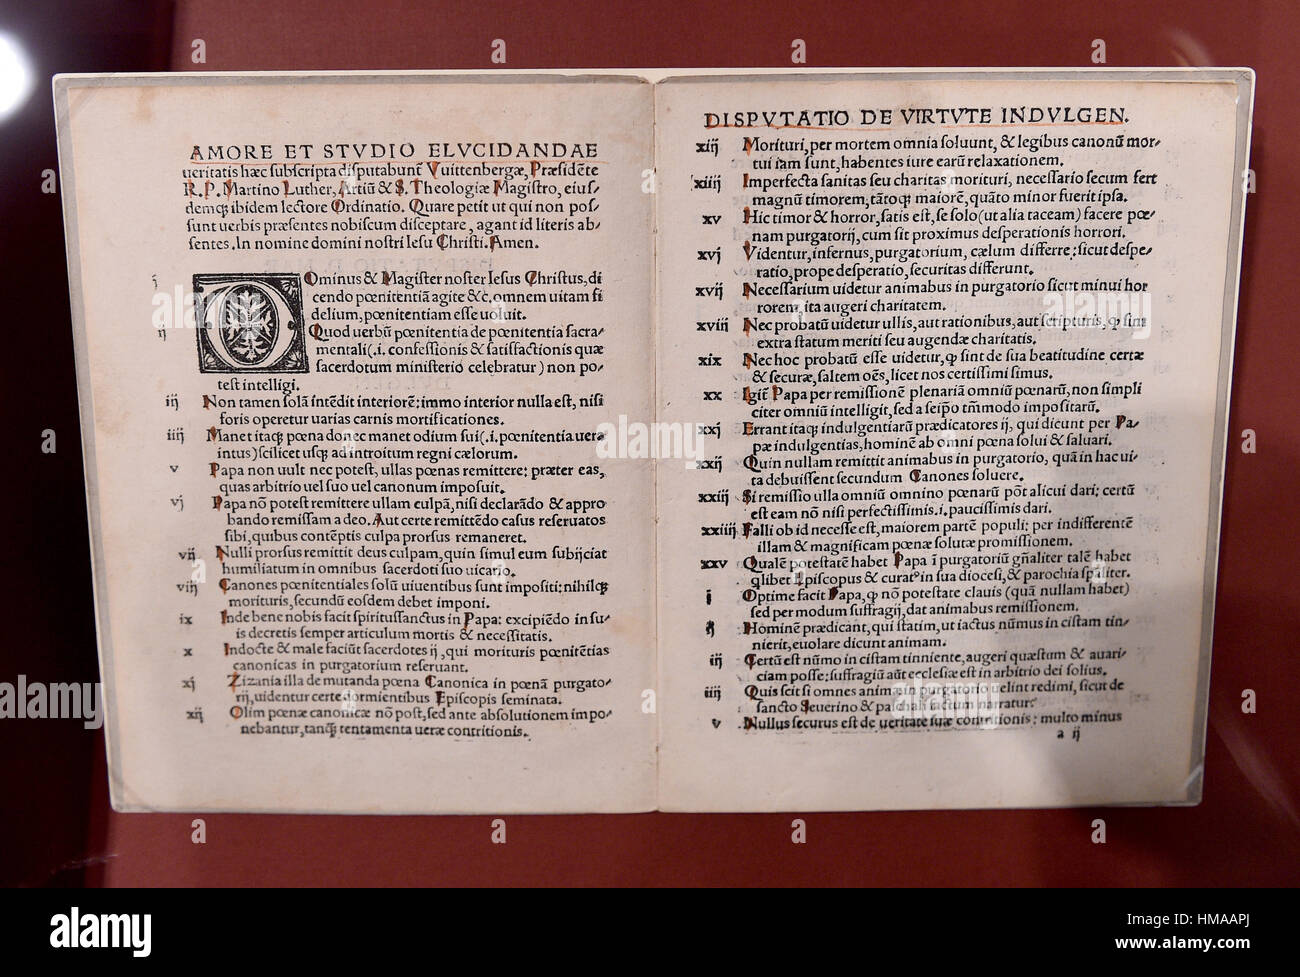 AMORE ET STVDIO ELVCIDANDAE
ueritatis hæc subscripta disputabunt̃ Vuittenbergæ, Præsidẽte
R.P. Martino Luther, Artiũ & S. Theologiæ Magistro, eius/
demq; ibidem lectore Ordinatio. Quare petit ut qui non pos/
sunt uerbis præsentes nobiscum disceptare, agant id literis ab/
sentes. In nomine domini nostri Iesu Christi. Amen.
i DOminus & Magister noster Iesus Christus, di
cendo pœnitentiã agite &c. omnem uitam fi
delium, pœnitentiam esse uoluit.
ij Quod uerbũ pœnitentia de pœnitentia sacra/
mentali (.i. confessionis & satisfactionis quæ
sacerdotum ministerio celebratur) non po/
test intelligi.
iij Non tamen solã intẽdit interiorẽ: immo interior nulla est, nisi
foris operetur uarias carnis mortificationes.
iiij Manet itaq; pœna donec manet odium sui (.i. pœnitentia uera
intus) scilicet usq; ad introitum regni cælorum.
v Papa non uult nec potest, ullas pœnas remittere: præter eas,
quas arbitrio uel suo uel canonum imposuit.
vj Papa nõ potest remittere ullam culpã, nisi declarãdo & appro
bando remissam a deo. Aut certe remittẽdo casus reseruatos
sibi, quibus contẽptis culpa prorsus remaneret.
vij Nulli prorsus remittit deus culpam, quin simul eum subijciat
humiliatum in omnibus sacerdoti suo uicario.
viij Canones pœnitentiales solũ uiuentibus sunt impositi: nihilq;
morituris, secundũ eosdem debet imponi.
ix Inde bene nobis facit spiritussanctus in Papa: excipiẽdo in su/
is decretis semper articulum mortis & necessitatis.
x Indocte & male faciũt sacerdotes ij, qui morituris pœnitẽtias
canonicas in purgatorium reseruant.
xj Zizania illa de mutanda pœna Canonica in pœnã purgato/
rij, uidentur certe dormientibus Episcopis seminata.
xij Olim pœnæ canonicæ nõ post, sed ante absolutionem impo/
nebantur, tanq; tentamenta ueræ contritionis.
DISPVTATIO DE VIRTVTE INDVLGEN.
xiij Morituri, per mortem omnia soluunt, & legibus canonũ mor/
tui iam sunt, habentes iure earũ relaxationem.
xiiij Imperfecta sanitas seu charitas morituri, necessario secum fert
magnũ timorem, tãtoq; maiorẽ, quãto minor fuerit ipsa.
xv Hic timor & horror, satis est, se solo (ut alia taceam) facere pœ/
nam purgatorij, cum sit proximus desperationis horrori.
xvj Videntur, infernus, purgatorium, cælum differre: sicut despe/
ratio, prope desperatio, securitas differunt.
xvij Necessarium uidetur animabus in purgatorio sicut minui hor
rorem, ita augeri charitatem.
xviij Nec probatũ uidetur ullis, aut rationibus, aut scripturis, q̃ sint
extra statum meriti seu augendæ charitatis.
xix Nec hoc probatũ esse uidetur, q̃ sint de sua beatitudine certæ
& securæ, saltem oẽs, licet nos certissimi simus.
xx Igit̃ Papa per remissionẽ plenariã omniũ pœnarũ, non simpli
citer omniũ intelligit, sed a seip̃o tm̃modo impositarũ.
xxj Errant itaq; indulgentiarũ prædicatores ij, qui dicunt per Pa/
pæ indulgentias, hominẽ ab omni pœna solui & saluari.
xxij Quin nullam remittit animabus in purgatorio, quã in hac ui/
ta debuissent secundum Canones soluere.
xxiij Si remissio ulla omniũ omnino pœnarũ põt alicui dari: certũ
est eam nõ nisi perfectissimis .i. paucissimis dari.
xxiiij Falli ob id necesse est, maiorem partẽ populi: per indifferentẽ
illam & magnificam pœnæ solutæ promissionem.
xxv Qualẽ potestatẽ habet Papa ĩ purgatoriũ gñaliter talẽ habet
q̃libet Episcopus & curat᷒ in sua diocesi, & parochia sp̃aliter.
i Optime facit Papa, q̃ nõ potestate clauis (quã nullam habet)
sed per modum suffragij, dat animabus remissionem.
ij Hominẽ prædicant, qui statim, ut iactus nũmus in cistam tin/
nierit, euolare dicunt animam.
iij Certũ est nũmo in cistam tinniente, augeri quæstum & auari/
ciam posse: suffragiũ aũt ecclesiæ est in arbitrio dei solius.
iiij Quis scit si omnes animæ in purgatorio uelint redimi, sicut de
sancto Seuerino & paschali factum narratur.
v Nullus securus est de ueritate suæ contritionis: multo minus
a ij
alamy
Image ID: HMAAPJ
www.alamy.com